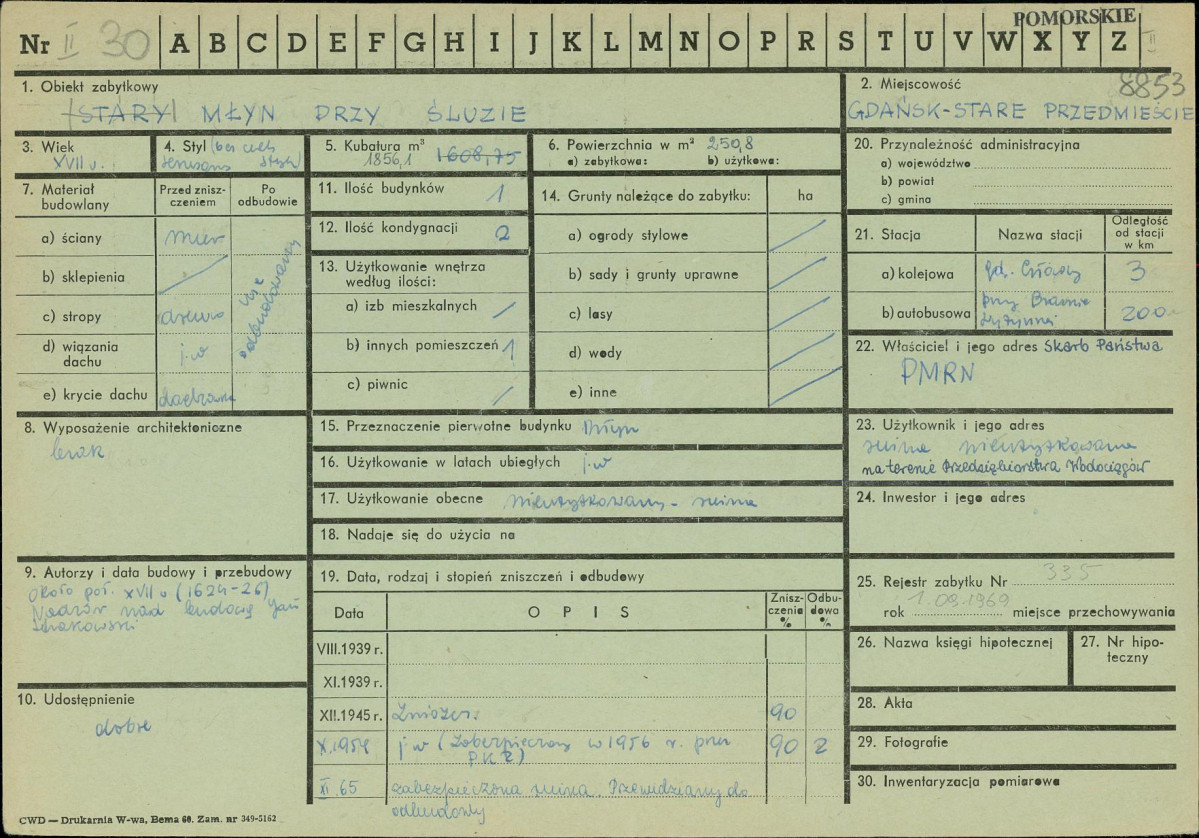 POMORSKIE
Nr II 30 A B C D E F G H I J K L M N O P R S T U V W X Y Z II
1. Obiekt zabytkowy
(STARY) MŁYN PRZY ŚLUZIE
2. Miejscowość 8853
GDAŃSK-STARE PRZEDMIEŚCIE
3. Wiek
XVII w.
4. Styl (bez cech
stylu)
5. Kubatura m³
1856,1 1608,75
6. Powierzchnia w m² 250,8
a) zabytkowa: b) użytkowa:
20. Przynależność administracyjna
a) województwo
b) powiat
c) gmina
7. Materiał budowlany
Przed zniszczeniem
Po odbudowie
a) ściany mur
b) sklepienia /
c) stropy drewno
d) wiązania dachu j.w
e) krycie dachu dachówka
nie odbudowany
11. Ilość budynków 1
12. Ilość kondygnacji 2
13. Użytkowanie wnętrza
według ilości:
a) izb mieszkalnych /
b) innych pomieszczeń 1
c) piwnic /
14. Grunty należące do zabytku: ha
a) ogrody stylowe /
b) sady i grunty uprawne /
c) lasy /
d) wody /
e) inne /
21. Stacja
Nazwa stacji
Odległość od stacji w km
a) kolejowa Gd. Główny 3
b) autobusowa przy Bramie
Wyżynnej 200
22. Właściciel i jego adres Skarb Państwa
PMRN
8. Wyposażenie architektoniczne
brak
15. Przeznaczenie pierwotne budynku Młyn
16. Użytkowanie w latach ubiegłych j.w
17. Użytkowanie obecne nieużytkowany - ruina
18. Nadaje się do użycia na
23. Użytkownik i jego adres
ruina nieużytkowana
na terenie Przedsiębiorstwa Wodociągów
24. Inwestor i jego adres
9. Autorzy i data budowy i przebudowy
około poł. XVII w (1624-26)
Nadzór nad budową Jan
Strakowski
19. Data, rodzaj i stopień zniszczeń i odbudowy
Data OPIS Zniszczenie % Odbudowa %
VIII.1939 r.
XI.1939 r.
XII.1945 r. Zniszcz. 90
X.1959 j.w (Zabezpieczony w 1956 r. przez 90 2
PKZ)
XI.65 zabezpieczona ruina. Przewidziany do
odbudowy
25. Rejestr zabytku Nr 335
rok 1.09.1969 miejsce przechowywania
26. Nazwa księgi hipotecznej
27. Nr hipoteczny
10. Udostępnienie
dobre
28. Akta
29. Fotografie
30. Inwentaryzacja pomiarowa
CWD — Drukarnia W-wa, Bema 60. Zam. nr 349-5162